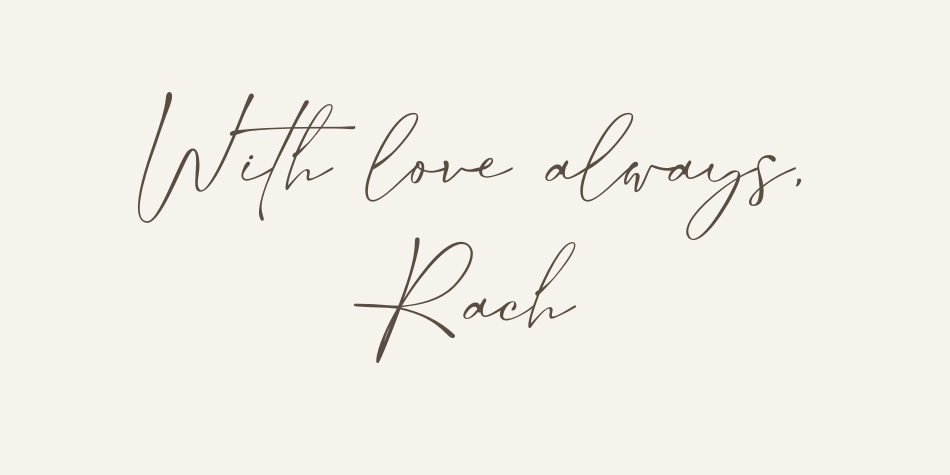 With love always,
Rach